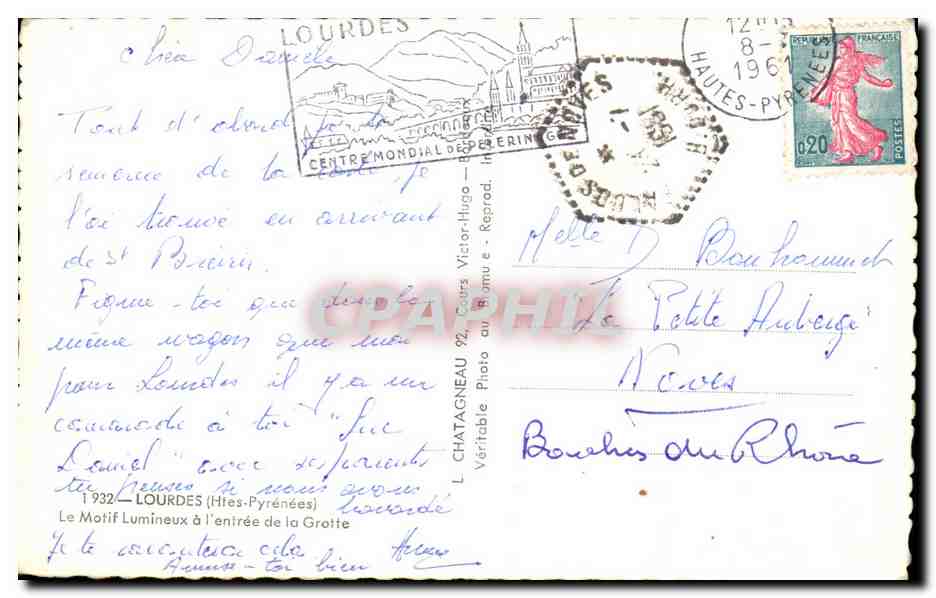 LOURDES
CENTRE MONDIAL DE PELERINAGE
12H15
8-
1961
HAUTES-PYRENEES
REPUBLIQUE FRANÇAISE
0,20
POSTES
NOVES
BCHES DU RH
1961
Tout d'abord
semaine de la je
l'ai trouvé en arrivant
de St
Figure-toi que dans le
même wagon que moi
pour Lourdes il y a un
camarade à toi "Luc
Daniel" avec ses parents
tu penses si nous avons
bavardé
1932 — LOURDES (Htes-Pyrénées)
Le Motif Lumineux à l'entrée de la Grotte
Je te raconterai cela
Amuse-toi bien
L. CHATAGNEAU 92, Cours Victor-Hugo — Bordeaux
Véritable Photo au Bromure - Reprod. Interdite
Melle D Bonhommet
La Petite Auberge
Noves
Bouches du Rhône
CPAPHIL